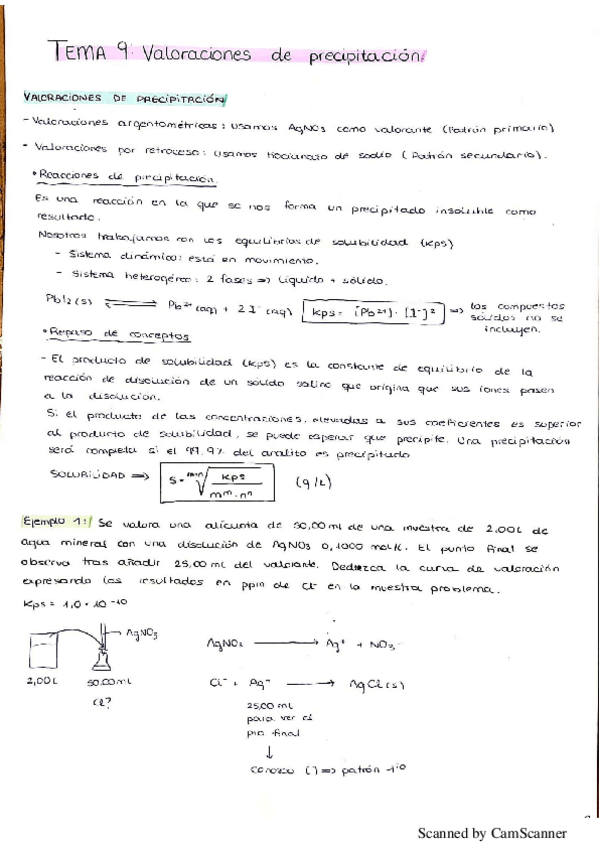 TEMA 9. Valoraciones de precipitación
VALORACIONES DE PRECIPITACIÓN
- Valoraciones argentométricas: usamos AgNO3 como valorante (Patrón primario)
- Valoraciones por retroceso: usamos tiocianato de sodio (Patrón secundario).
• Reacciones de precipitación.
Es una reacción en la que se nos forma un precipitado insoluble como
resultado.
Nosotros trabajamos con los equilibrios de solubilidad (Kps)
- Sistema dinámico: está en movimiento.
- Sistema heterogéneo: 2 fases => líquido + sólido.
PbI2(s) ⇌ Pb2+(aq) + 2I-(aq) Kps = [Pb2+]·[I-]2 => los compuestos
sólidos no se
incluyen.
• Repaso de conceptos
- El producto de solubilidad (Kps) es la constante de equilibrio de la
reacción de disolución de un sólido salino que origina que sus iones pasen
a la disolución.
Si el producto de las concentraciones, elevadas a sus coeficientes es superior
al producto de solubilidad, se puede esperar que precipite. Una precipitación
será completa si el 99,9% del analito es precipitado
SOLUBILIDAD => S = m+n√(Kps / mm·nn) (g/L)
Ejemplo 1: Se valora una alícuota de 50,00 ml de una muestra de 2,00L de
agua mineral con una disolución de AgNO3 0,1000 mol/L. El punto final se
observa tras añadir 25,00 ml del valorante. Deduzca la curva de valoración
expresando los resultados en ppm de Cl- en la muestra problema.
Kps = 1,0 · 10-10
AgNO3
AgNO3 → Ag+ + NO3-
2,00L 50,00ml
Cl- + Ag+ → AgCl(s)
Cl-?
25,00 ml
para ver el
pto final
↓
conozco [ ] => patrón 1º
Scanned by CamScanner